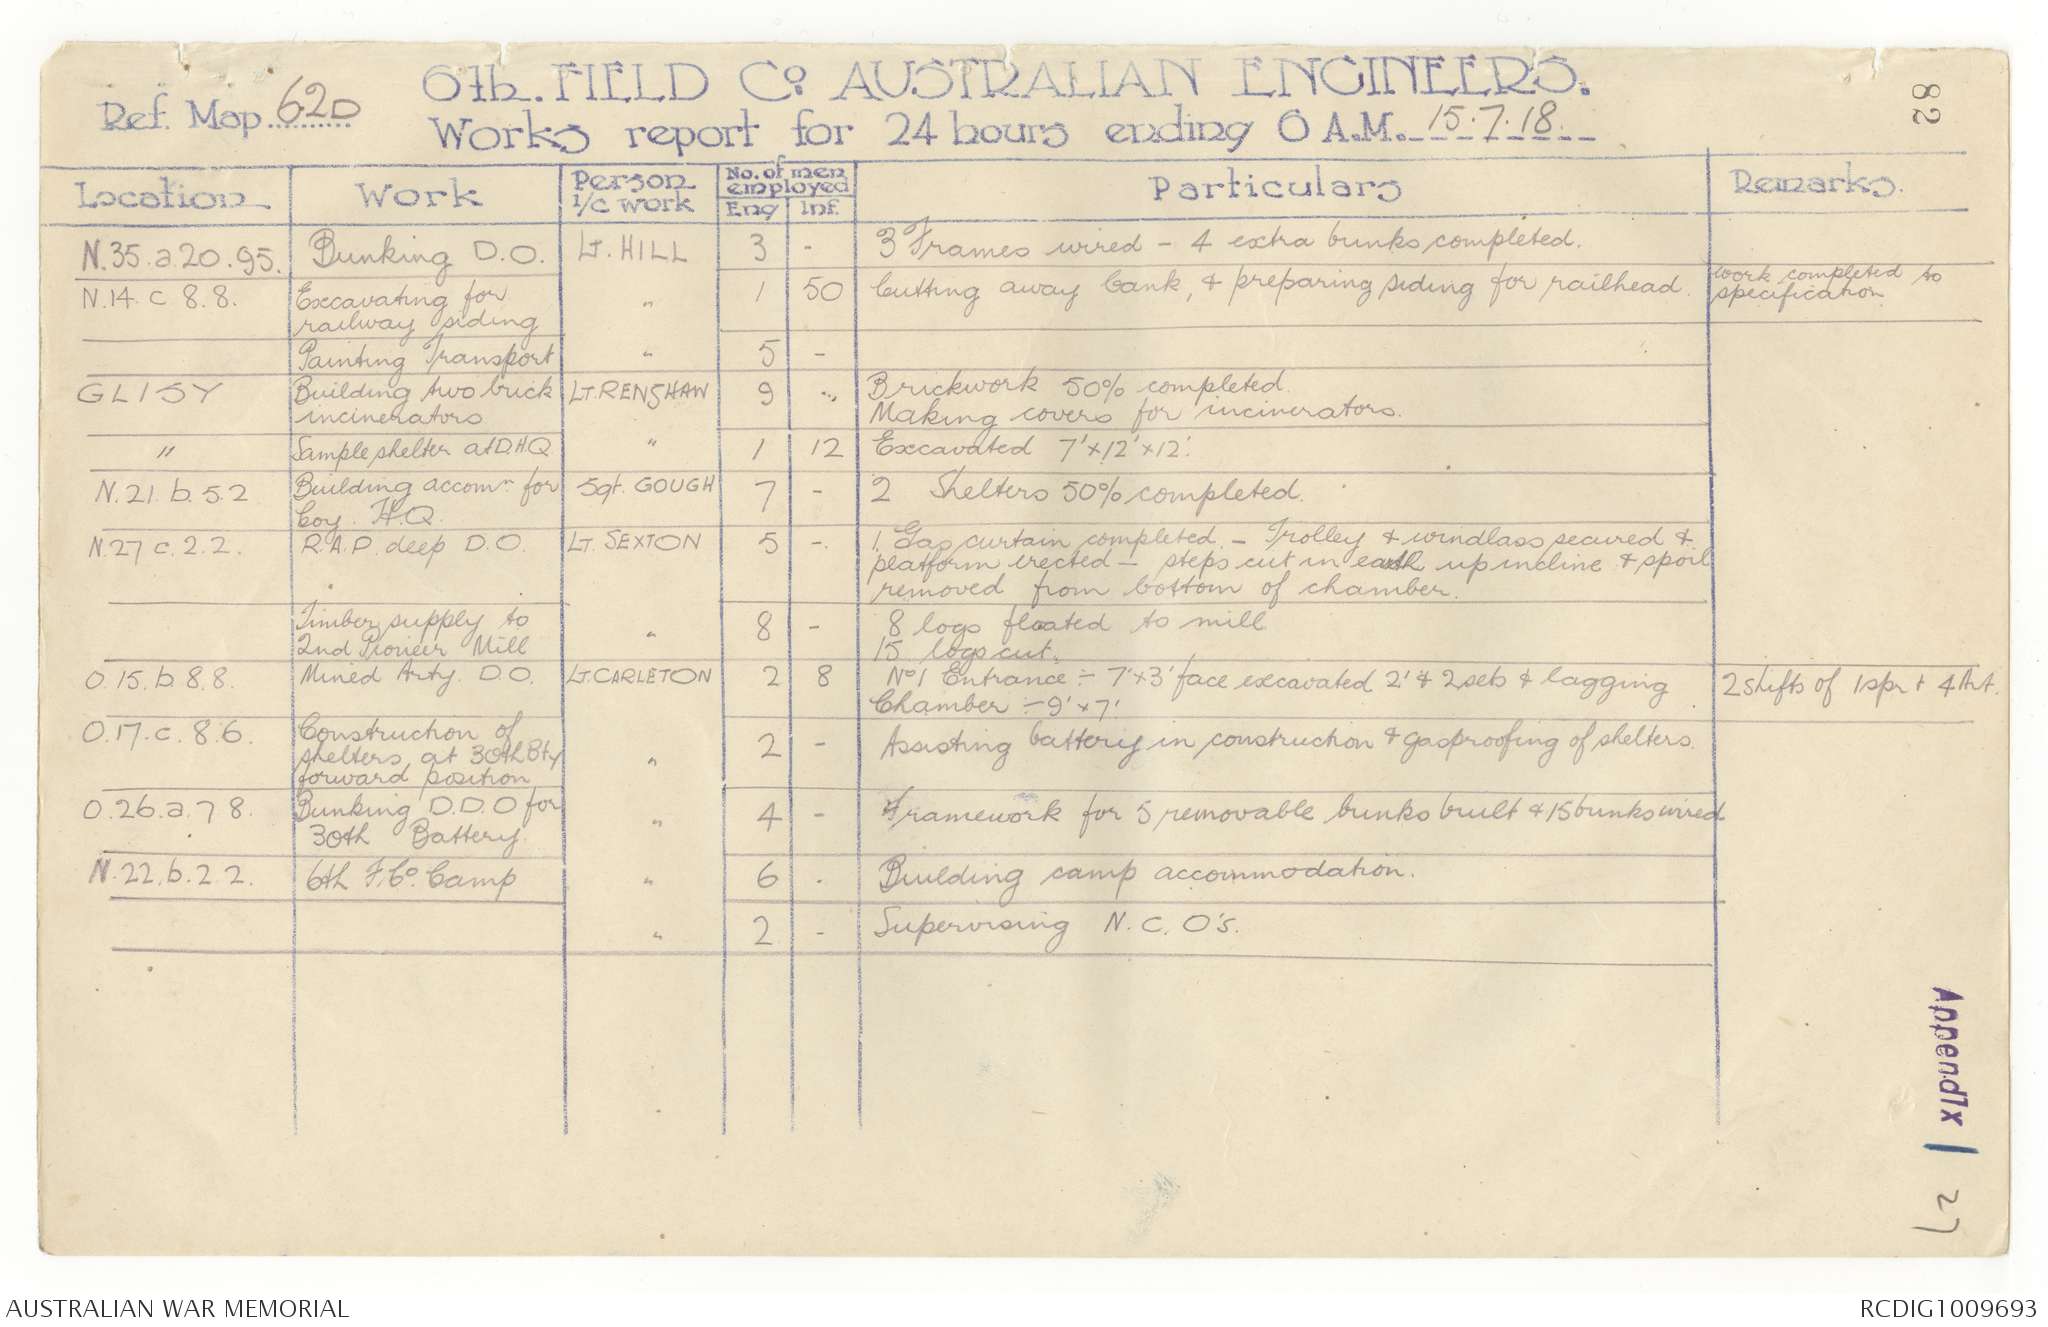 82
6th. FIELD Co. AUSTRALIAN ENGINEERS.
Ref. Map 62D
Works report for 24 hours ending 6 A.M. 15.7.18.
Location Work Person i/c work No. of men employed Eng Inf. Particulars Remarks.
N.35.a.20.95. Bunking D.O. Lt. HILL 3 - 3 Frames wired - 4 extra bunks completed.
N.14.c 8.8. Excavating for railway siding " 1 50 Cutting away bank, & preparing siding for railhead. Work completed to specification
Painting Transport " 5 -
GLISY Building two brick incinerators Lt. RENSHAW 9 " Brickwork 50% completed.
Making covers for incinerators.
" Sample shelter at D.H.Q " 1 12 Excavated 7'x12'x12'.
N.21.b.5.2 Building accomn for Coy. H.Q. Sgt. GOUGH 7 - 2 Shelters 50% completed.
N.27 c.2.2. R.A.P. deep D.O. Lt. SEXTON 5 - 1. Gas curtain completed. - Trolley & windlass secured &
platform erected - steps cut in earth up incline & spoil
removed from bottom of chamber.
Timber supply to 2nd Pioneer Mill " 8 - 8 logs floated to mill
15 logs cut.
O.15.b.8.8. Mined Arty. D.O. Lt. CARLETON 2 8 No 1 Entrance - 7'x3' face excavated 2' & 2 sets & lagging 2 shifts of 1 spr + 4 Art.
Chamber - 9'x7'
O.17.c.8.6. Construction of shelters at 30th Bty forward position " 2 - Assisting battery in construction & gasproofing of shelters.
O.26.a.7 8. Bunking D.D.O for 30th Battery. " 4 - Framework for 5 removable bunks built & 15 bunks wired
N.22.b.2 2. 6th F.Co. Camp " 6 - Building camp accommodation.
" 2 - Supervising N.C.O's.
Appendix 1
27
AUSTRALIAN WAR MEMORIAL
RCDIG1009693